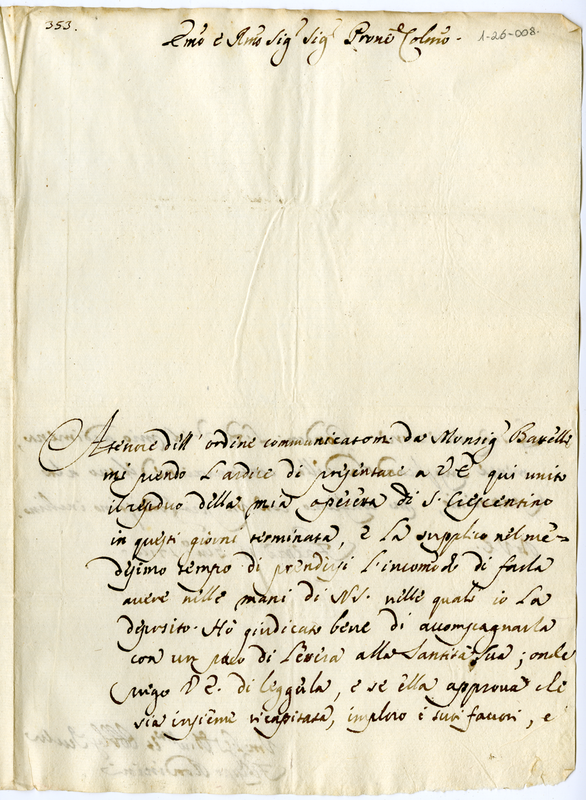 353.
Emo e Rmo Sigr Sigr Prone Colmo.
1-26-008.
A tenore dell' ordine communicatomi da Monsigr Batelli
mi prendo l'ardire di presentare a V E qui unito
il residuo della mia operetta di S. Crescentino
in questi giorni terminata, e la supplico nel me-
desimo tempo di prendersi l'incomodo di farla
avere nelle mani di N.S. nelle quali io la
deposito. Hò giudicato bene di accompagnarla
con un poco di lettera alla Santità Sua; onde
prego V E. di leggerla, e se ella approva che
sia insieme ricapitata, imploro i suoi favori, e